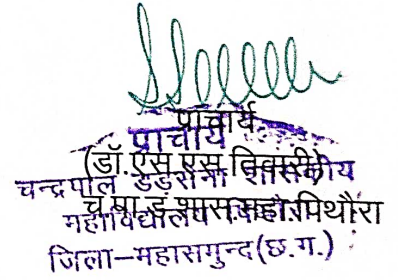 प्राचार्य
प्राचार्य
(डॉ.एस.एस.तिवारी)
चन्द्रपाल डडसेना शासकीय
च.पा.ड.शास.महा.पिथौरा
महाविद्यालय पिथौरा
जिला-महासमुन्द(छ.ग.)